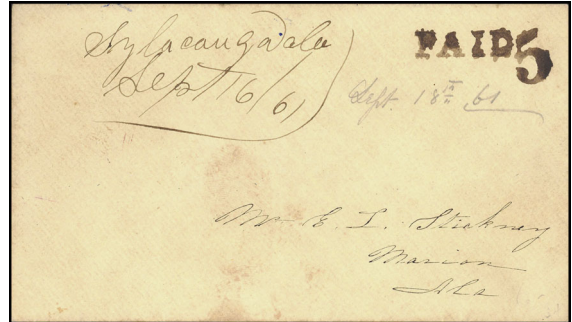 Sylacauga Ala
Sept 16/61
PAID 5
Sept. 18th 61
Mr E. L. Stickney
Marion
Ala